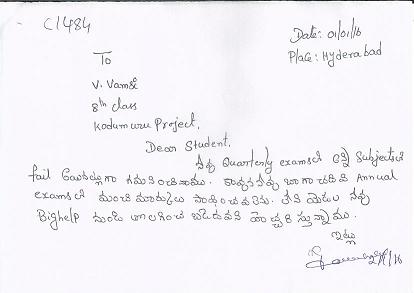 C1484
Date: 01/01/16
Place: Hyderabad
To
V. Vamsi
8th class
Kodumuru Project.
Dear Student,
నీవు Quarterly examsలో అన్ని Subjectsలో
fail గమనించినాము. బాగా చదివి Annual
examsలో మంచి మార్కులు సాధించవలెను. లేని యెడల నీవు
Bighelp నుండి తొలగించ బడుదువని హెచ్చరిస్తున్నాము.
ఇట్లు